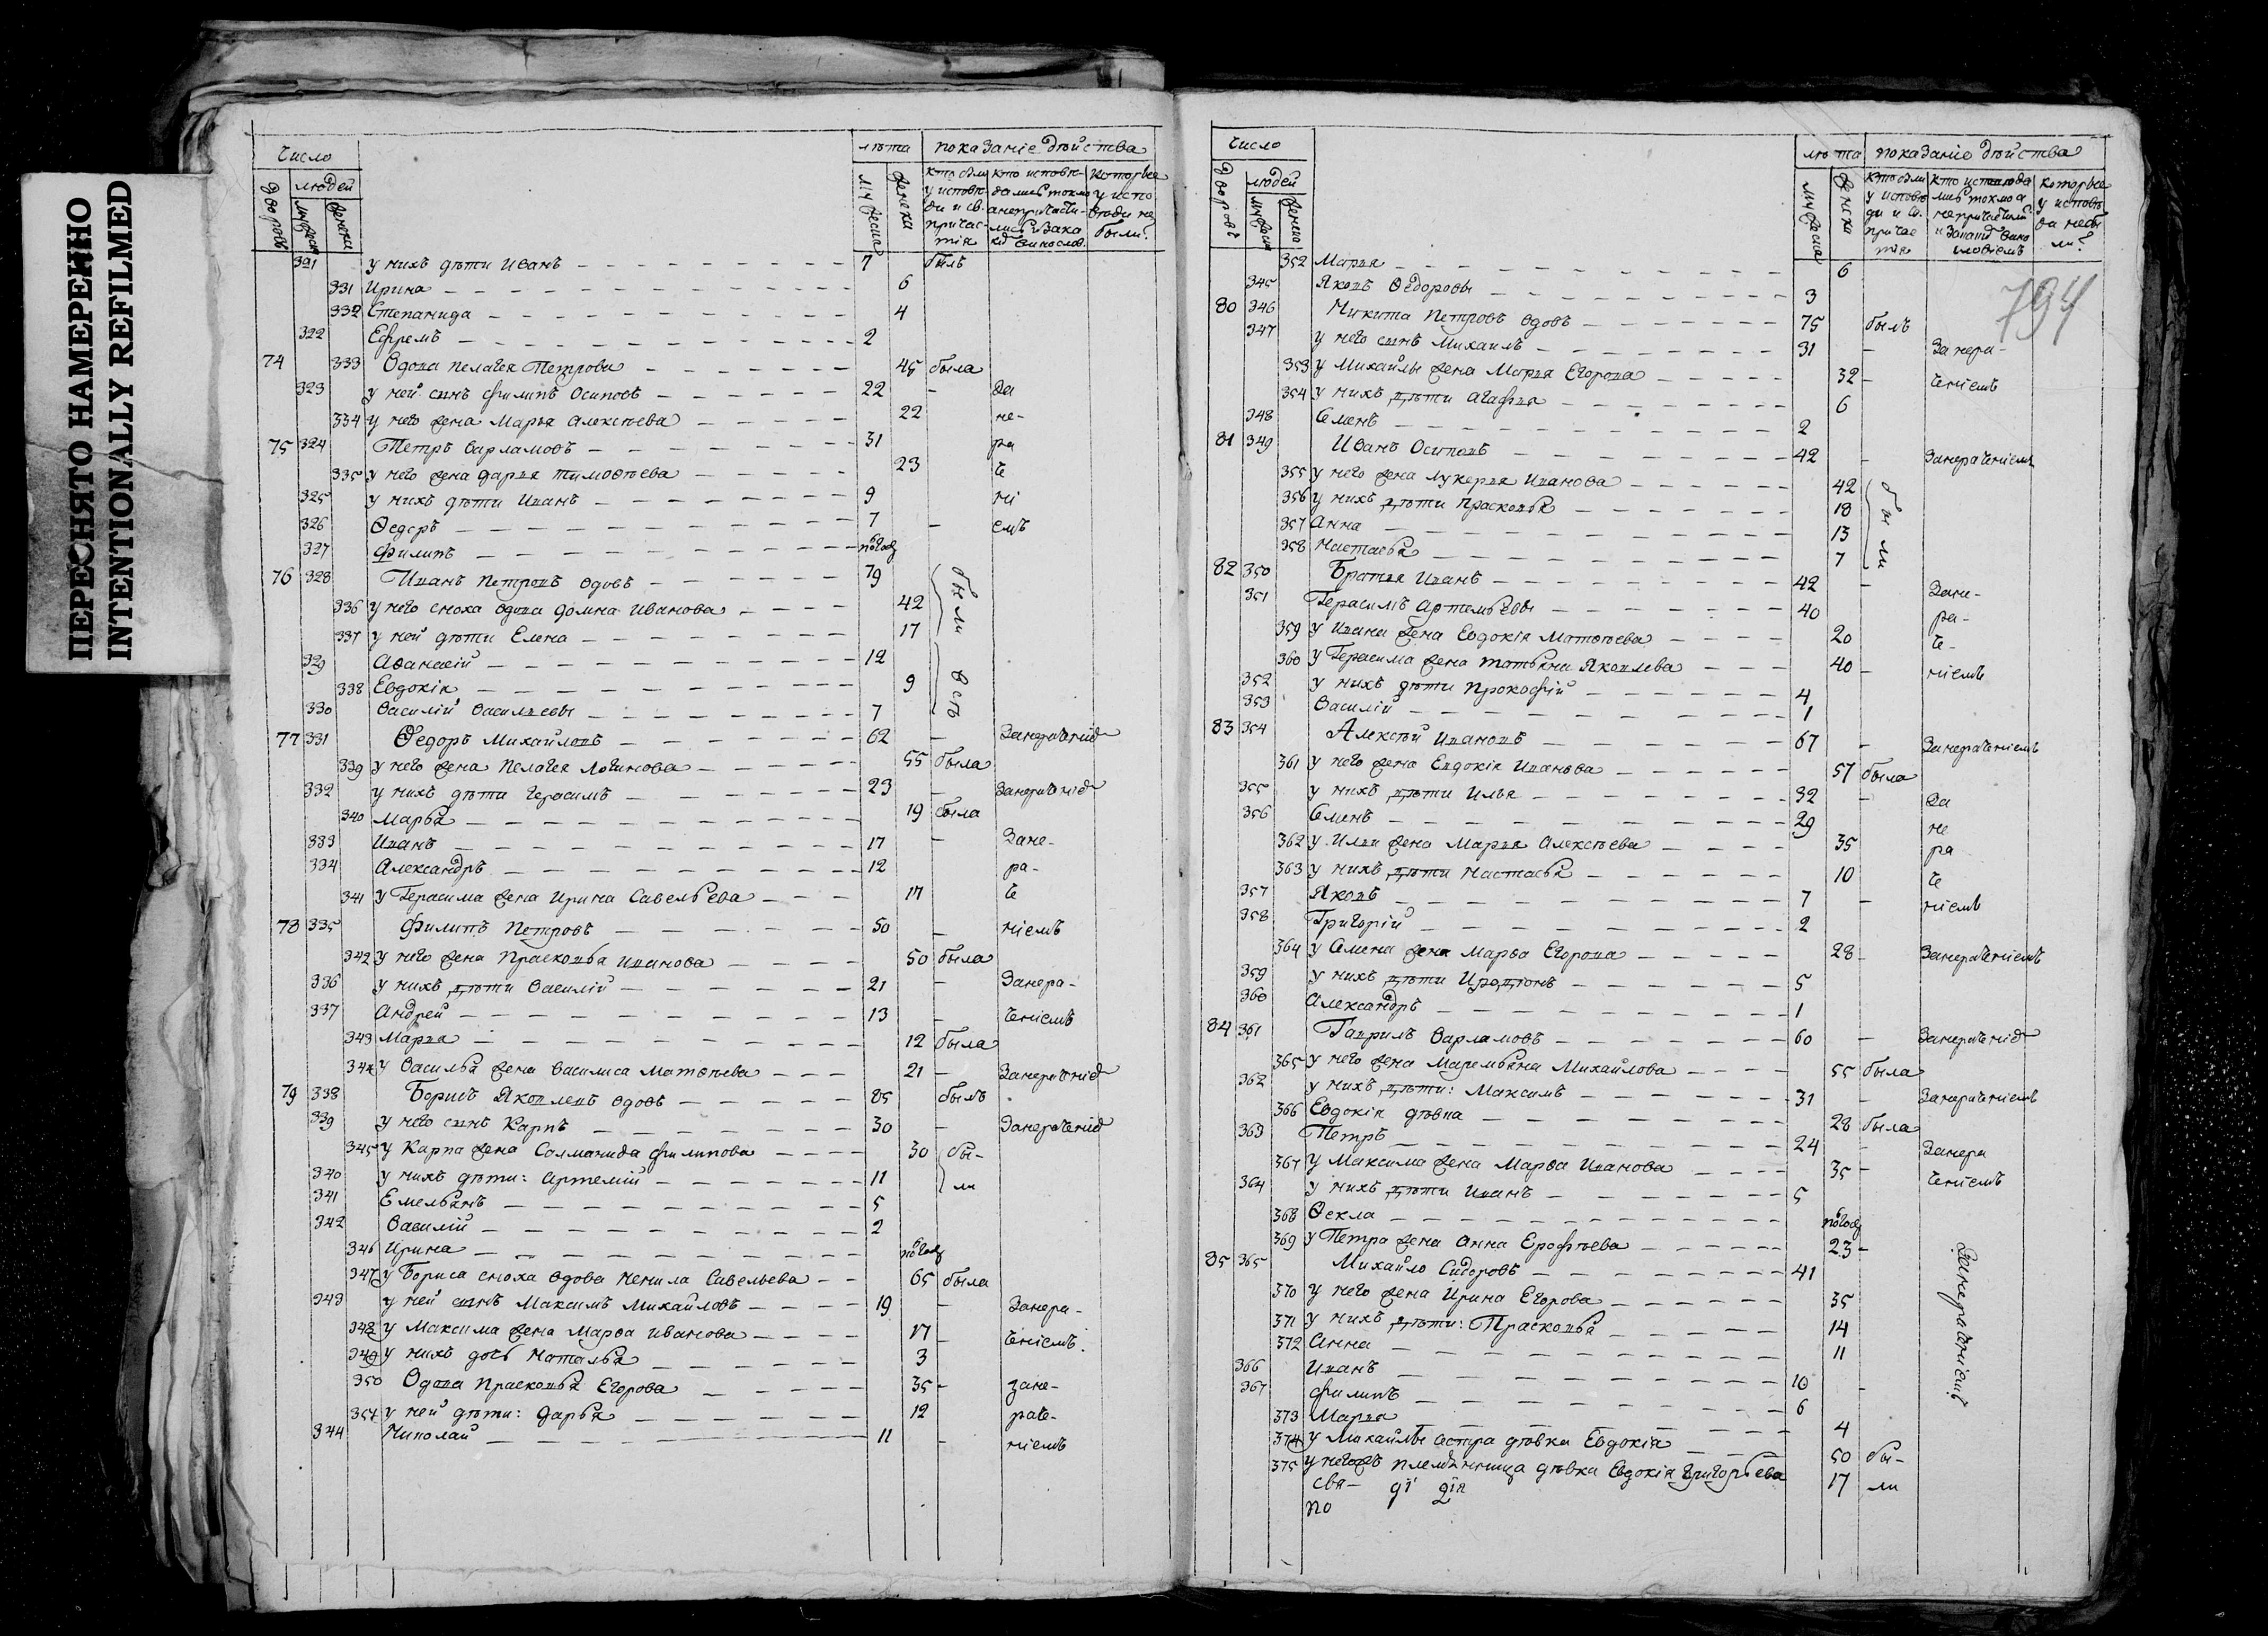 ПЕРЕСНЯТО НАМЕРЕННО
INTENTIONALLY REFILMED
Число
людей
лѣта
показаніе дѣйства
321 у нихъ дѣти Иванъ 7 былъ
331 Ирина 6
332 Степанида 4
322 Ефремъ 2
74 333 Вдова Пелагея Петрова 45 была
323 у ней сынъ Филипъ Осиповъ 22 - За
334 у него жена Марья Алексѣева 22 не-
75 324 Петръ Варламовъ 31 ра
335 у него жена Дарья Тимоѳѣева 23 че
325 у нихъ дѣти Иванъ 9 ні
326 Ѳедоръ 7 - емъ
327 Филипъ полгод
76 328 Иванъ Петровъ вдовъ 79
336 у него сноха вдова Домна Иванова 42 были
337 у ней дѣти Елена 17
329 Аѳанасій 12
338 Евдокія 9 всѣ
330 Василій Васильевы 7
77 331 Ѳедоръ Михайловъ 62 - Занераченіе
339 у него жена Пелагея Логинова 55 была
332 у нихъ дѣти Герасимъ 23 - Занераченіе
340 Марья 19 была
333 Иванъ 17 - Зане-
334 Александръ 12 ра-
341 у Герасима жена Ирина Савельева 17 че
78 335 Филипъ Петровъ 50 - ніемъ
342 у него жена Прасковья Иванова 50 была
336 у нихъ дѣти Василій 21 - Занера-
337 Андрей 13 - ченіемъ
343 Марья 12 была
344 у Василья жена Василиса Матѳѣева 21 - Занераченіе
79 338 Борисъ Яковлевъ вдовъ 85 былъ
339 у него сынъ Карпъ 30 - Занераченіе
345 у Карпа жена Соломанида Филипова 30 бы-
340 у нихъ дѣти: Артемій 11 ли
341 Емельянъ 5
342 Василій 2
346 Ирина полгод
347 у Бориса сноха вдова Ненила Савельева 65 была
343 у ней сынъ Максимъ Михайловъ 19 - Занера-
348 у Максима жена Марѳа Иванова 17 - ченіемъ.
349 у нихъ дочь Наталья 3
350 Вдова Прасковья Егорова 35 - зане-
351 у ней дѣти: Дарья 12 раче-
344 Николай 11 - ніемъ
Число
людей
лѣта
показаніе дѣйства
794
352 Марья 6
345 Яковъ Ѳедоровы 3
80 346 Никита Петровъ вдовъ 75 былъ
347 у него сынъ Михаилъ 31 - Занера-
353 у Михайлы жена Марья Егорова 32 - ченіемъ
354 у нихъ дѣти Агафья 6
348 Семенъ 2
81 349 Иванъ Осиповъ 42 - Занераченіемъ
355 у него жена Лукерья Иванова 42 были
356 у нихъ дѣти Прасковья 18
357 Анна 13
358 Настасья 7
82 350 Братья Иванъ 42 - Зане-
351 Герасимъ Артемьевы 40 ра-
359 у Ивана жена Евдокія Матѳѣева 20 че-
360 у Герасима жена Татьяна Яковлева 40 - ніемъ
352 у нихъ дѣти Прокофій 4
353 Василій 1
83 354 Алексѣй Ивановъ 67 - Занераченіемъ
361 у него жена Евдокія Иванова 57 была
355 у нихъ дѣти Илья 32 - За
356 Семенъ 29 не
362 у Ильи жена Марья Алексѣева 35 ра
363 у нихъ дѣти Настасья 10 че
357 Яковъ 7 - ніемъ
358 Григорій 2
364 у Семена жена Марѳа Егорова 28 - Занераченіемъ
359 у нихъ дѣти Иродіонъ 5
360 Александръ 1
84 361 Гаврилъ Варламовъ 60 - Занераченіе
365 у него жена Маремьяна Михайлова 55 была
362 у нихъ дѣти: Максимъ 31 - Занераченіемъ
366 Евдокія дѣвка 28 была
363 Петръ 24 - Занера
367 у Максима жена Марѳа Иванова 35 - ченіемъ
364 у нихъ дѣти Иванъ 5
368 Ѳекла полгод
369 у Петра жена Анна Ерофѣева 23 -
85 365 Михайло Сидоровъ 41 Занераченіемъ
370 у него жена Ирина Егорова 35
371 у нихъ дѣти: Прасковья 14
372 Анна 11
366 Иванъ 10 -
367 Филипъ 6
373 Марья 4
374 у Михайлы сестра дѣвка Евдокія 50 бы-
375 у негожъ племянница дѣвка Евдокія Григорьева 17 ли
свя-
по